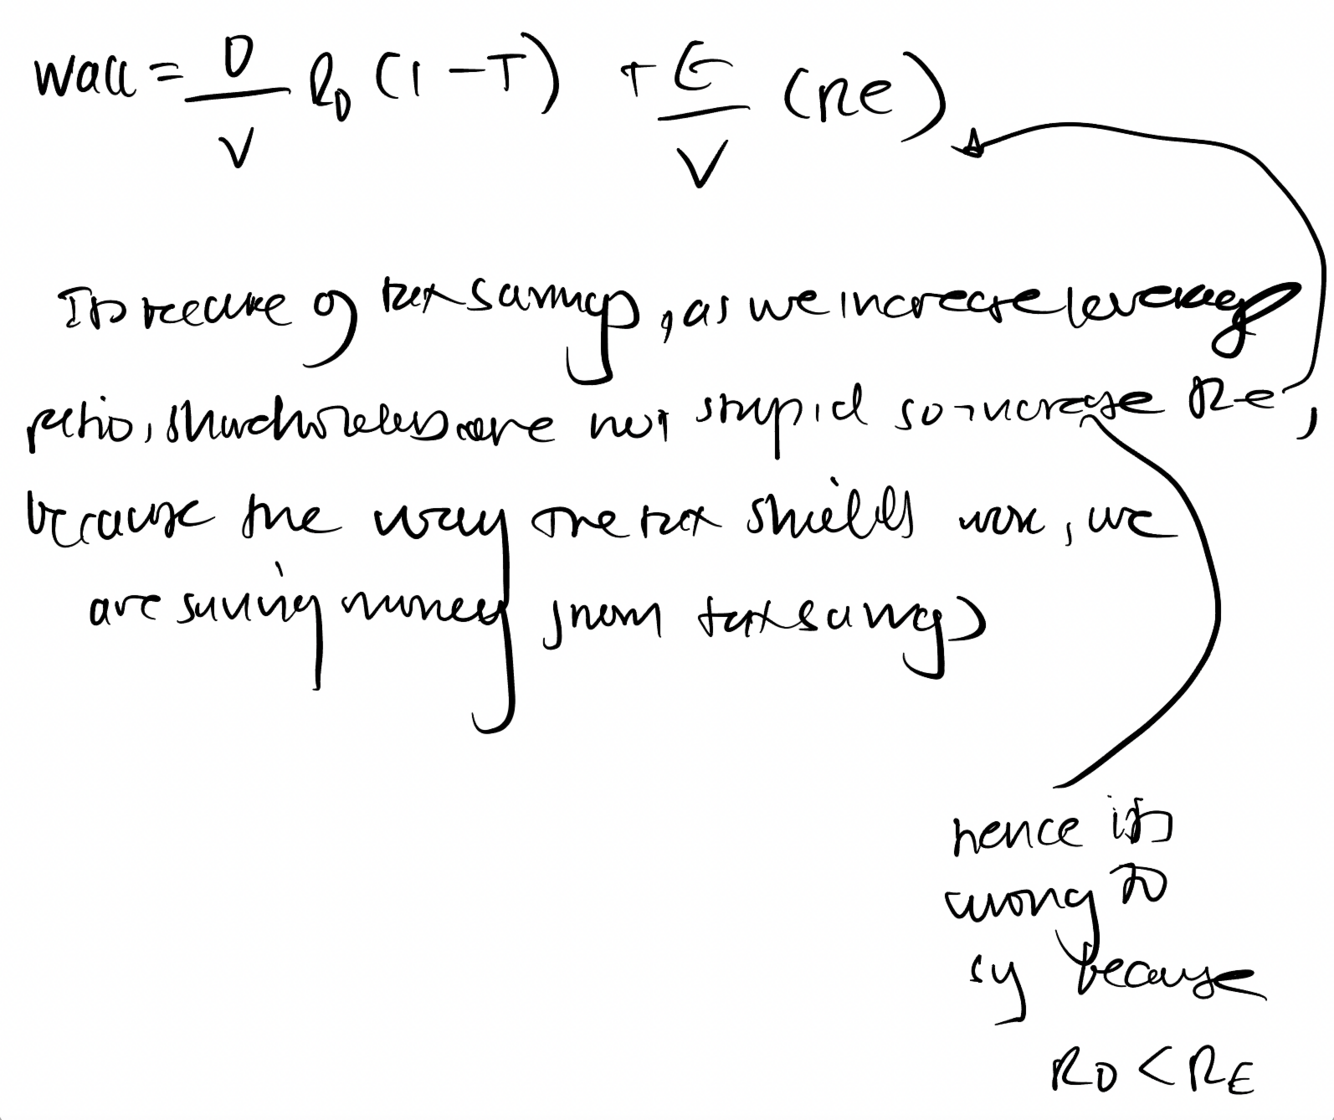 wacc = D/V R_D (1 - T) + E/V (Re)
Its because of tax savings, as we increase leverage
ratio, shareholders are not stupid so increase Re,
because the way the tax shields work, we
are saving money from tax savings
hence its
wrong to
sy because
R_D < R_E